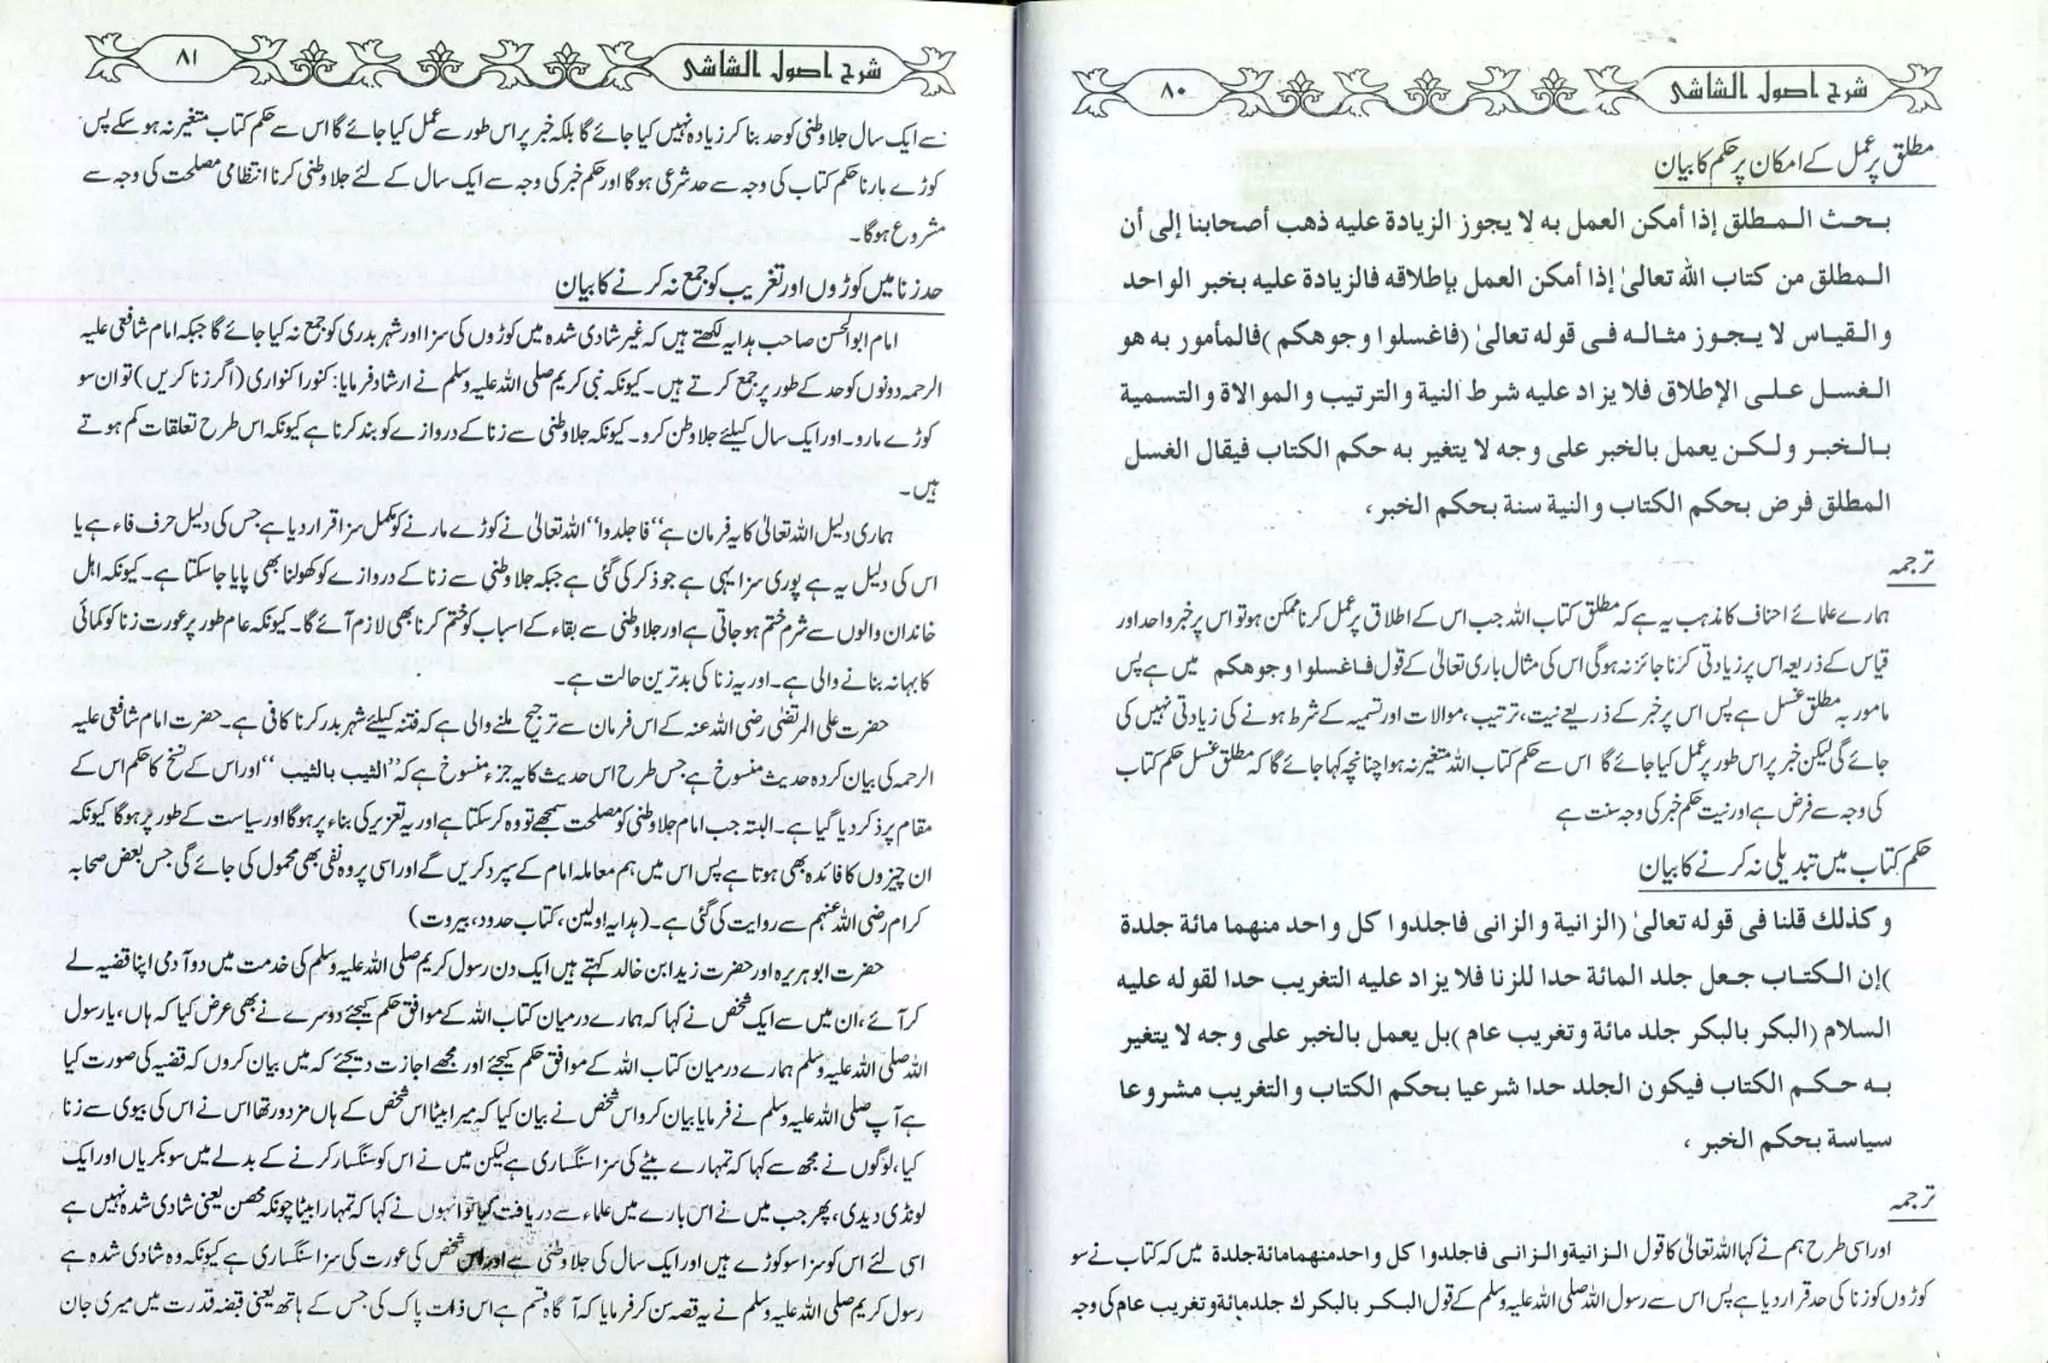 شرح اصول الشاشی
۸۰
مطلق پر عمل کے امکان پر حکم کا بیان
بحث المطلق إذا أمكن العمل به لا يجوز الزيادة عليه ذهب أصحابنا إلى أن
المطلق من كتاب الله تعالىٰ إذا أمكن العمل بإطلاقه فالزيادة عليه بخبر الواحد
والقياس لا يجوز مثاله فى قوله تعالىٰ (فاغسلوا وجوهكم )فالمأمور به هو
الغسل على الإطلاق فلا يزاد عليه شرط النية والترتيب والموالاة والتسمية
بالخبر ولكن يعمل بالخبر على وجه لا يتغير به حكم الكتاب فيقال الغسل
المطلق فرض بحكم الكتاب والنية سنة بحكم الخبر،
ترجمہ
ہمارے علمائے احناف کا مذہب یہ ہے کہ مطلق کتاب اللہ جب اس کے اطلاق پر عمل کرنا ممکن ہو تو اس پر خبر واحد اور
قیاس کے ذریعہ اس پر زیادتی کرنا جائز نہ ہوگی اس کی مثال باری تعالیٰ کے قول فاغسلوا وجوهكم میں ہے پس
مامور بہ مطلق غسل ہے پس اس پر خبر کے ذریعے نیت، ترتیب، موالات اور تسمیہ کے شرط ہونے کی زیادتی نہیں کی
جائے گی لیکن خبر پر اس طور پر عمل کیا جائے گا اس سے حکم کتاب اللہ متغیر نہ ہوا چنانچہ کہا جائے گا کہ مطلق غسل حکم کتاب
کی وجہ سے فرض ہے اور نیت حکم خبر کی وجہ سنت ہے
حکم کتاب میں تبدیلی نہ کرنے کا بیان
وكذلك قلنا فى قوله تعالىٰ (الزانية والزانى فاجلدوا كل واحد منهما مائة جلدة
)إن الكتاب جعل جلد المائة حدا للزنا فلا يزاد عليه التغريب حدا لقوله عليه
السلام (البكر بالبكر جلد مائة وتغريب عام )بل يعمل بالخبر على وجه لا يتغير
به حكم الكتاب فيكون الجلد حدا شرعيا بحكم الكتاب والتغريب مشروعا
سياسة بحكم الخبر ،
ترجمہ
اور اسی طرح ہم نے کہا اللہ تعالیٰ کا قول الزانية والزانى فاجلدوا كل واحد منهما مائة جلدة میں کہ کتاب نے سو
کوڑوں کو زنا کی حد قرار دیا ہے پس اس سے رسول اللہ صلی اللہ علیہ وسلم کے قول البكر بالبكرك جلد مائة وتغريب عام کی وجہ
شرح اصول الشاشی
۸۱
سے ایک سال جلا وطنی کو حد بنا کر زیادہ نہیں کیا جائے گا بلکہ خبر پر اس طور سے عمل کیا جائے گا اس سے حکم کتاب متغیر نہ ہو سکے پس
کوڑے مارنا حکم کتاب کی وجہ سے حد شرعی ہوگا اور حکم خبر کی وجہ سے ایک سال کے لئے جلا وطنی کرنا انتظامی مصلحت کی وجہ سے
مشروع ہوگا۔
حد زنا میں کوڑوں اور تغریب کو جمع نہ کرنے کا بیان
امام ابوالحسن صاحب ہدایہ لکھتے ہیں کہ غیر شادی شدہ میں کوڑوں کی سزا اور شہر بدری کو جمع نہ کیا جائے گا جبکہ امام شافعی علیہ
الرحمہ دونوں کو حد کے طور پر جمع کرتے ہیں۔ کیونکہ نبی کریم صلی اللہ علیہ وسلم نے ارشاد فرمایا: کنورا کنواری (اگر زنا کریں) تو ان سو
کوڑے مارو۔ اور ایک سال کیلئے جلا وطن کرو۔ کیونکہ جلا وطنی سے زنا کے دروازے کو بند کرنا ہے کیونکہ اس طرح تعلقات کم ہوتے
ہیں۔
ہماری دلیل اللہ تعالیٰ کا یہ فرمان ہے ‘‘فاجلدوا‘‘ اللہ تعالیٰ نے کوڑے مارنے کو مکمل سزا قرار دیا ہے جس کی دلیل حرف فاء ہے یا
اس کی دلیل یہ ہے پوری سزا یہی ہے جو ذکر کی گئی ہے جبکہ جلا وطنی سے زنا کے دروازے کو کھولنا بھی پایا جا سکتا ہے۔ کیونکہ اہل
خاندان والوں سے شرم ختم ہو جاتی ہے اور جلا وطنی سے بقاء کے اسباب کو ختم کرنا بھی لازم آئے گا۔ کیونکہ عام طور پر عورت زنا کو کمائی
کا بہانہ بنانے والی ہے۔ اور یہ زنا کی بدترین حالت ہے۔
حضرت علی المرتضیٰ رضی اللہ عنہ کے اس فرمان سے ترجیح ملنے والی ہے کہ فتنہ کیلئے شہر بدر کرنا کافی ہے۔ حضرت امام شافعی علیہ
الرحمہ کی بیان کردہ حدیث منسوخ ہے جس طرح اس حدیث کا یہ جزء منسوخ ہے کہ ’’الثيب بالثيب ‘‘ اور اس کے نسخ کا حکم اس کے
مقام پر ذکر دیا گیا ہے۔ البتہ جب امام جلا وطنی کو مصلحت سمجھے تو وہ کر سکتا ہے اور یہ تعزیر کی بناء پر ہوگا اور سیاست کے طور پر ہوگا کیونکہ
ان چیزوں کا فائدہ بھی ہوتا ہے پس اس میں ہم معاملہ امام کے سپرد کریں گے اور اسی پر وہ نفی بھی محمول کی جائے گی جس بعض صحابہ
کرام رضی اللہ عنہم سے روایت کی گئی ہے۔ (ہدایہ اولین، کتاب حدود، بیروت)
حضرت ابو ہریرہ اور حضرت زید ابن خالد کہتے ہیں ایک دن رسول کریم صلی اللہ علیہ وسلم کی خدمت میں دو آدمی اپنا قضیہ لے
کر آئے، ان میں سے ایک شخص نے کہا کہ ہمارے درمیان کتاب اللہ کے موافق حکم کیجئے دوسرے نے بھی عرض کیا کہ ہاں، یا رسول
اللہ صلی اللہ علیہ وسلم ہمارے درمیان کتاب اللہ کے موافق حکم کیجئے اور مجھے اجازت دیجئے کہ میں بیان کروں کہ قضیہ کی صورت کیا
ہے آپ صلی اللہ علیہ وسلم نے فرمایا بیان کرو اس شخص نے بیان کیا کہ میرا بیٹا اس شخص کے ہاں مزدور تھا اس نے اس کی بیوی سے زنا
کیا، لوگوں نے مجھ سے کہا کہ تمہارے بیٹے کی سزا سنگساری ہے لیکن میں نے اس کو سنگسار کرنے کے بدلے میں سو بکریاں اور ایک
لونڈی دیدی، پھر جب میں نے اس بارے میں علماء سے دریافت کیا تو انہوں نے کہا کہ تمہارا بیٹا چونکہ محصن یعنی شادی شدہ نہیں ہے
اسی لئے اس کو سزا سو کوڑے ہیں اور ایک سال کی جلا وطنی ہے اور اس شخص کی عورت کی سزا سنگساری ہے کیونکہ وہ شادی شدہ ہے
رسول کریم صلی اللہ علیہ وسلم نے یہ قصہ سن کر فرمایا کہ آگاہ قسم ہے اس ذات پاک کی جس کے ہاتھ یعنی قبضہ قدرت میں میری جان